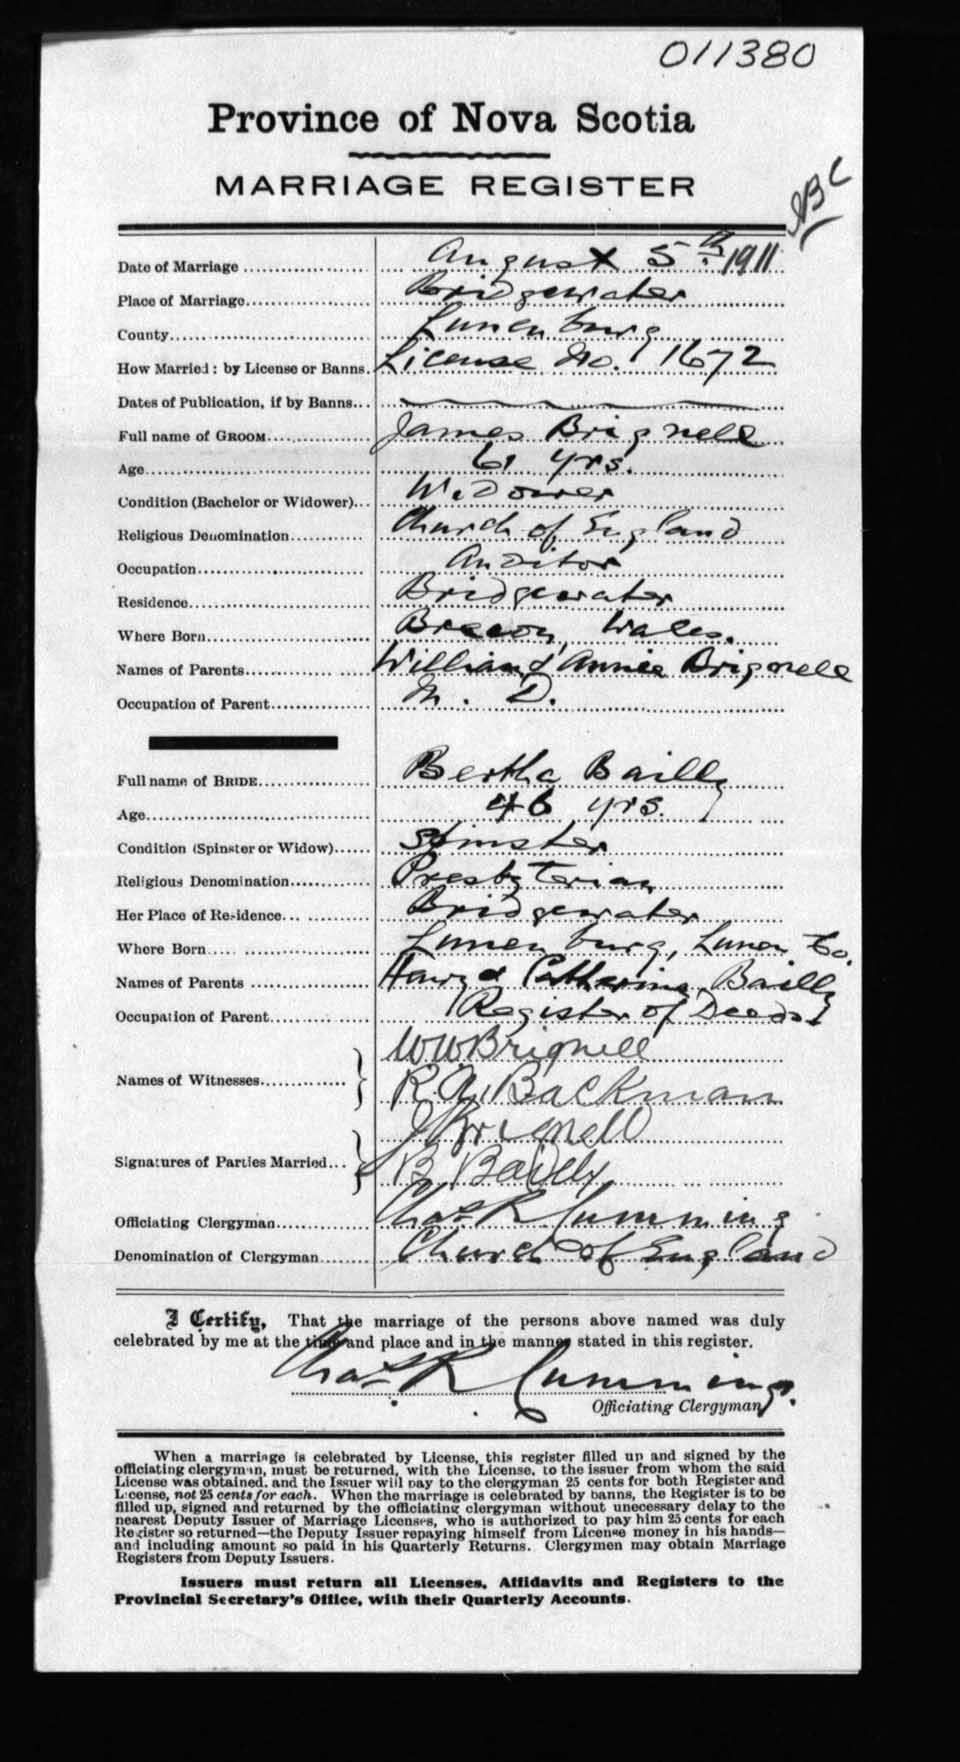 011380
Province of Nova Scotia
MARRIAGE REGISTER
Date of Marriage August 5th 1911
Place of Marriage Bridgewater
County Lunenburg
How Married: by License or Banns. License No. 1672
Dates of Publication, if by Banns
Full name of GROOM James Brignell
Age 61 yrs.
Condition (Bachelor or Widower) Widower
Religious Denomination Church of England
Occupation Auditor
Residence Bridgewater
Where Born Brecon, Wales.
Names of Parents William & Annie Brignell
Occupation of Parent M. D.
Full name of BRIDE Bertha Bailly
Age 46 yrs.
Condition (Spinster or Widow) Spinster
Religious Denomination Presbyterian
Her Place of Residence Bridgewater
Where Born Lunenburg, Lunen Co.
Names of Parents Henry & Catherine Bailly
Occupation of Parent Register of Deeds
Names of Witnesses W W Brignell
R. A. Backman
Signatures of Parties Married J Brignell
B Bailly
Officiating Clergyman Chas R Cumming
Denomination of Clergyman Church of England
I Certify, That the marriage of the persons above named was duly
celebrated by me at the time and place and in the manner stated in this register.
Chas R Cumming.
Officiating Clergyman
When a marriage is celebrated by License, this register filled up and signed by the
officiating clergyman, must be returned, with the License, to the issuer from whom the said
License was obtained, and the Issuer will pay to the clergyman 25 cents for both Register and
License, not 25 cents for each. When the marriage is celebrated by banns, the Register is to be
filled up, signed and returned by the officiating clergyman without unecessary delay to the
nearest Deputy Issuer of Marriage Licenses, who is authorized to pay him 25 cents for each
Register so returned—the Deputy Issuer repaying himself from License money in his hands—
and including amount so paid in his Quarterly Returns. Clergymen may obtain Marriage
Registers from Deputy Issuers.
Issuers must return all Licenses, Affidavits and Registers to the
Provincial Secretary's Office, with their Quarterly Accounts.